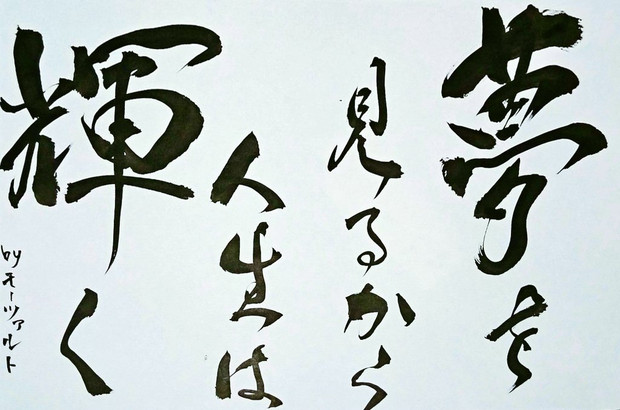 夢を
見るから
人生は
輝く
byモーツァルト